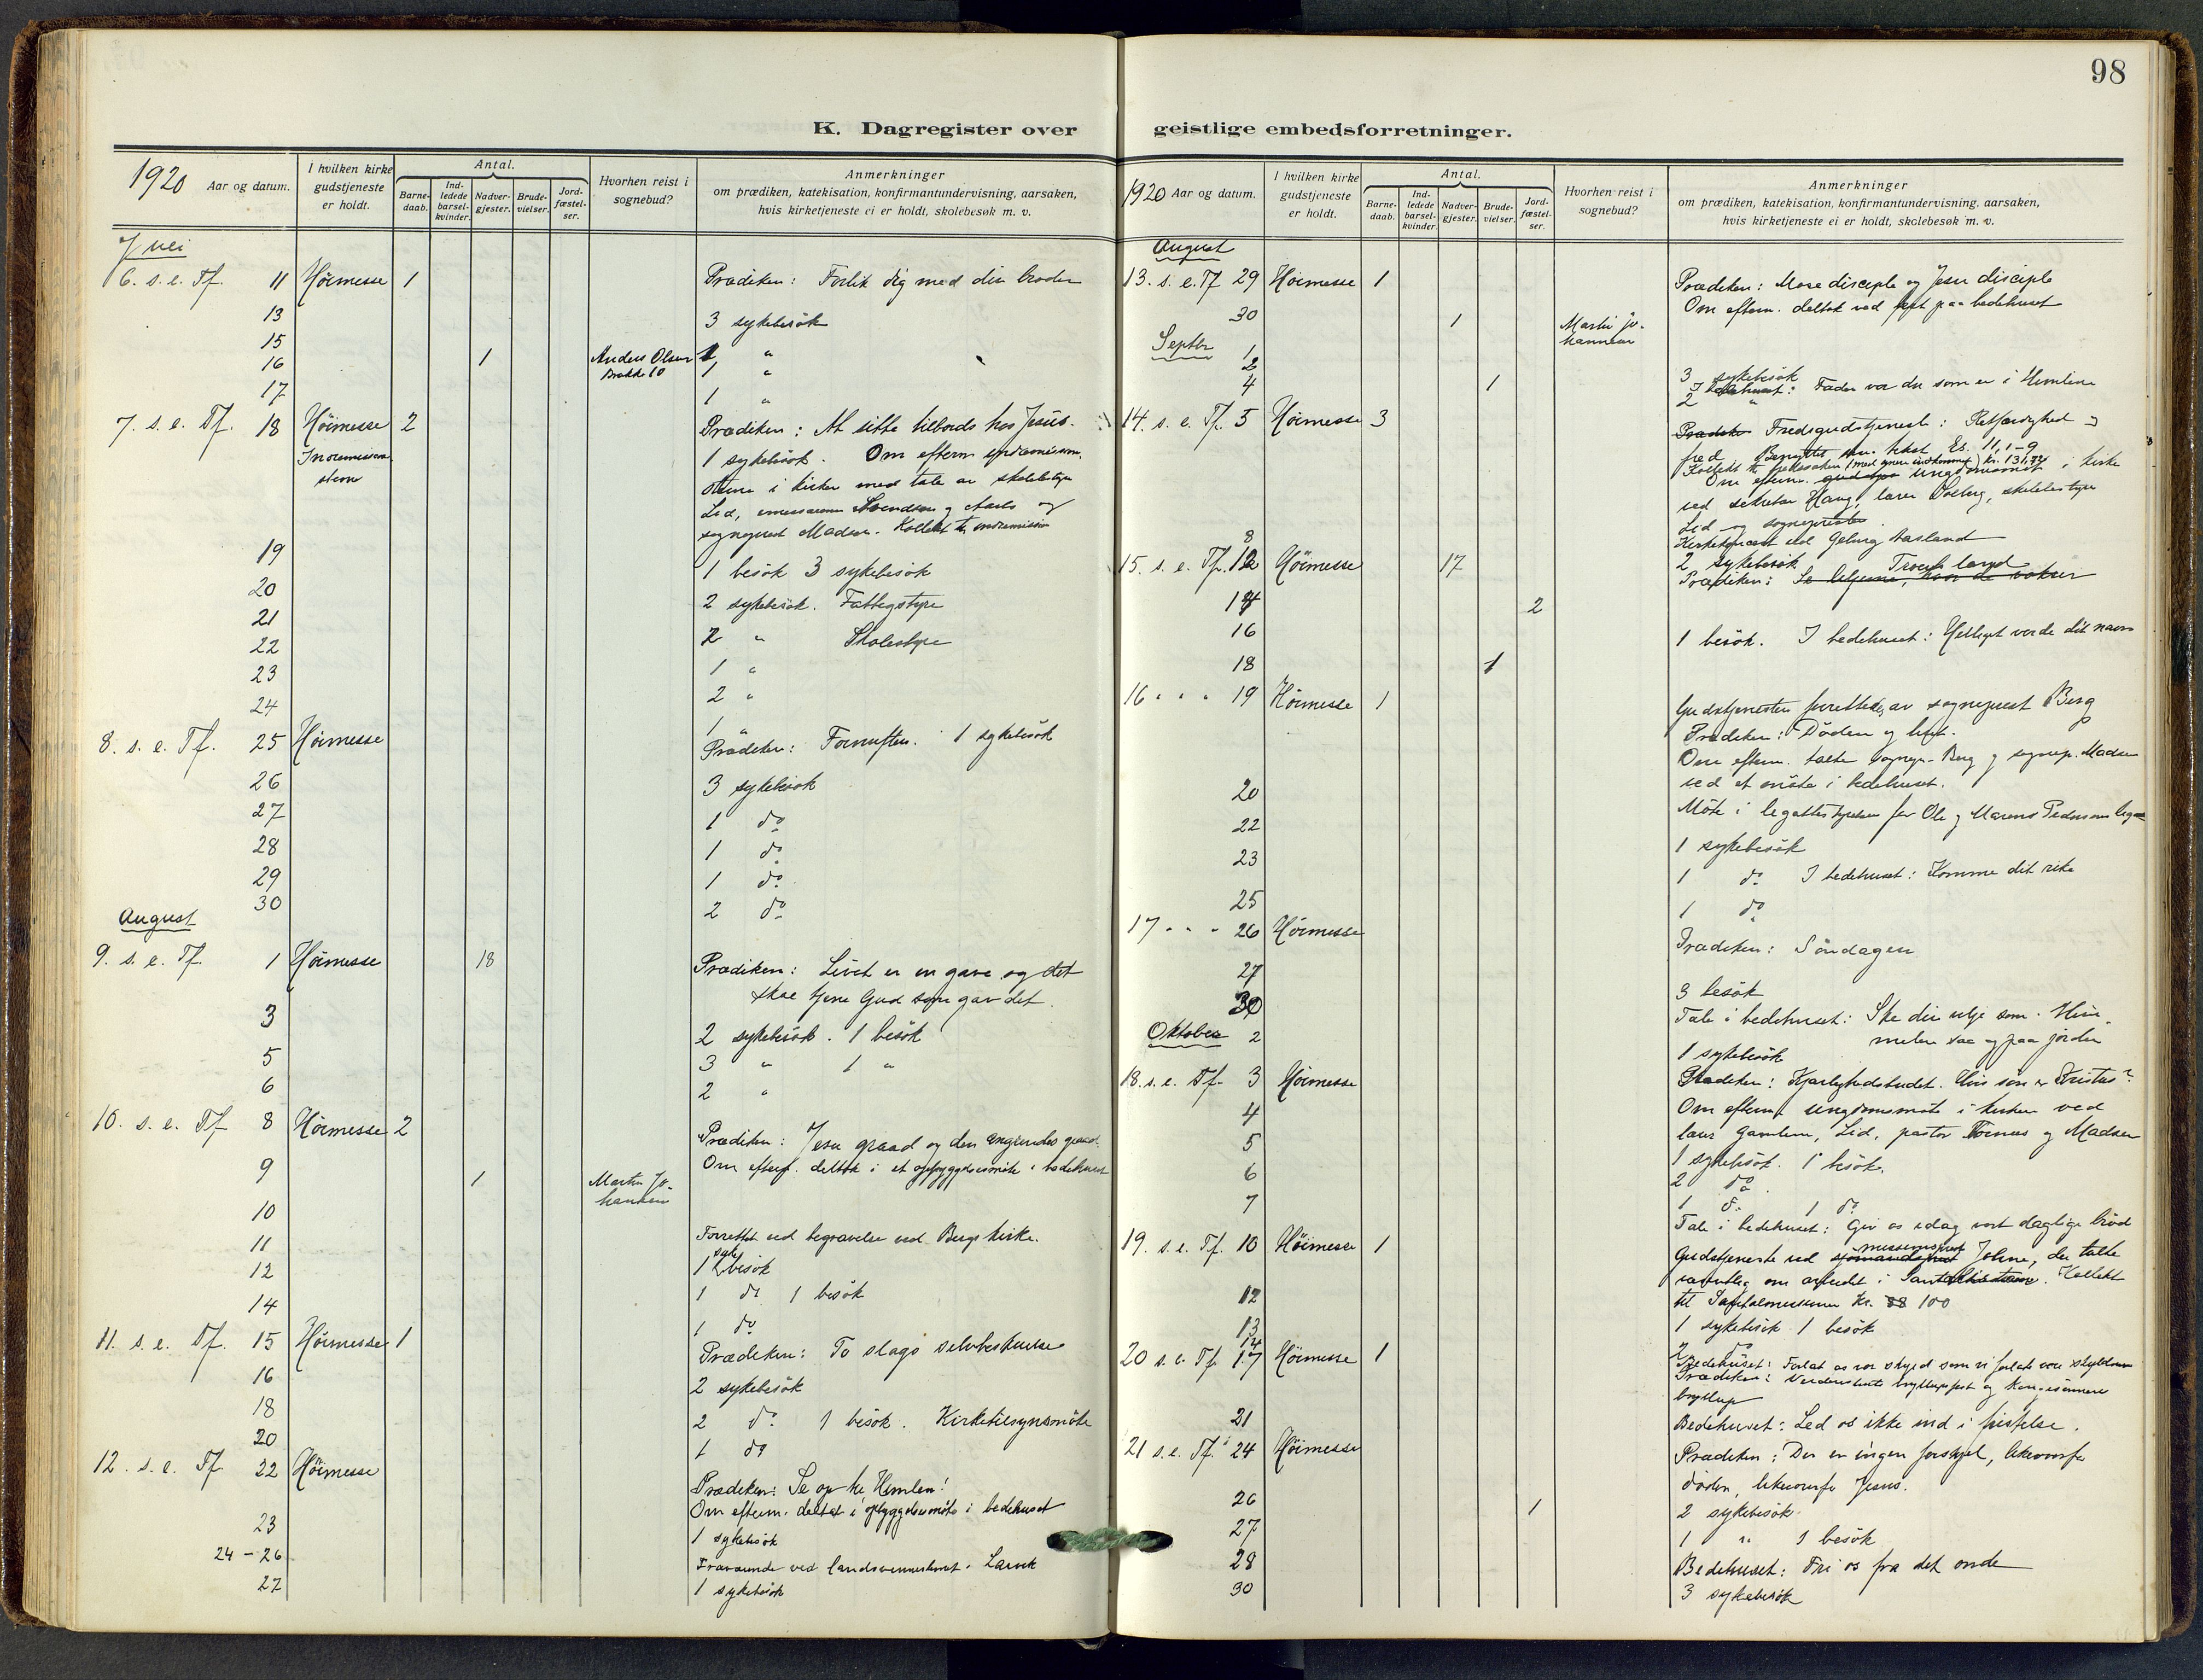 98
K. Dagregister over
1920 Aar og datum.
I hvilken kirke gudstjeneste er holdt.
Antal.
Barne-daab.
Ind-ledede barsel-kvinder.
Nadver-gjester.
Brude-vielser.
Jord-fæstel-ser.
Hvorhen reist i sognebud?
Anmerkninger
om prædiken, katekisation, konfirmantundervisning, aarsaken,
hvis kirketjeneste ei er holdt, skolebesøk m. v.
Juli
6. s. e. Tf. 11 Höimesse 1 Prædiken: Forlik dig med din broder
13 3 sykebesök
15 1 "
16 1 Anders Olsen 1 "
17 1 "
7. s. e. Tf. 18 Höimesse 2 Prædiken: At sitte tilbords hos Jesus.
1 sykebesök. Om efterm.
stevne i kirken med tale av skolebestyr
Lid, Svendsen og
sogneprest Madsen. Kollekt til indremission
19 1 besök 3 sykebesök
20 2 sykebesök. Fattigstyre
21 2 " Skolestyre
22 1 "
23 2 "
24 1 "
8. s. e. Tf. 25 Höimesse Prædiken: Fornuften. 1 sykebesök
26 3 sykebesök
27 1 do
28 1 do
29 1 do
30 2 do
August
9. s. e. Tf. 1 Höimesse 18 Prædiken: Livet er en gave og det
skal tjene Gud som gav det.
3 2 sykebesök. 1 besök
5 3 " 1 "
6 2 "
10. s. e. Tf 8 Höimesse 2 Prædiken: Jesu graad og den angrendes graad.
Om efterm. deltok i et opbyggelsesmöte i bedehuset
9 1 Martin Johansen
10 Forrettet ved begravelse ved Bergs kirke.
11 1 sykebesök
12 1 do 1 besök
14 1 do
11. s. e. Tf. 15 Höimesse 1 Prædiken: To slags selvbeskuelse
16 2 sykebesök
18 2 do 1 besök. Kirketilsynsmöte
20 1 do
12. s. e. Tf 22 Höimesse Prædiken: Se op til Himlen!
Om efterm. deltat i opbyggelsesmöte i bedehuset
23 1 sykebesök
24 - 26 Fraværende ved landsmennestevnet i Larvik
27 1 sykebesök
geistlige embedsforretninger.
1920 Aar og datum.
I hvilken kirke gudstjeneste er holdt.
Antal.
Barne-daab.
Ind-ledede barsel-kvinder.
Nadver-gjester.
Brude-vielser.
Jord-fæstel-ser.
Hvorhen reist i sognebud?
Anmerkninger
om prædiken, katekisation, konfirmantundervisning, aarsaken,
hvis kirketjeneste ei er holdt, skolebesøk m. v.
August
13. s. e. Tf 29 Höimesse 1 Prædiken: Mose disciple og Jesu disciple
Om efterm. deltok ved fest paa bedehuset
30 1 Martin Johannesen
Septbr 1 3 sykebesök
2 I bedehuset: Fader vor du som er i Himlene
4 1 2 "
14. s. e. Tf. 5 Höimesse 3 Prædike Fredsgudstjeneste: Retfærdighed og
fred. Benyttet tekst Es. 11, 1-9
Kollekt til fredssaken kr. 131,72
Om efterm. ungdomsmöte i kirke
ved sekretær Haug, lærer Solberg, skolebestyr
Lid og sogneprester.
8 2 sykebesök
15. s. e. Tf. 12 Höimesse 17 Prædiken: Se liljerne, hvor de vokser Troens land
14 2
16 1 besök. I bedehuset: Helliget vorde dit navn
18 1
16 " " " 19 Höimesse 1 Gudstjenesten forrettedes av sogneprest Berg
Prædiken: Döden og livet.
Om efterm. talte sognepr. Berg og sognepr. Madsen
ved et möte i bedehuset.
20 Möte i legatbestyrelsen for Ole og Marens Pedersens legat
22 1 sykebesök
23 1 do I bedehuset: Komme dit rike
25 1 do
17 " " " 26 Höimesse Prædiken: Söndagen
27 3 besök
30 Tale i bedehuset: Ske din vilje som i Him-
melen saa og paa jorden
Oktober 2 1 sykebesök
18. s. e. Tf. 3 Höimesse Prædiken: Kjærlighedsbudet. Hvis sön er Kristus?
Om efterm. ungdomsmöte i kirken ved
lærer Gamlem, Lid, pastor og Madsen
4 1 sykebesök. 1 besök.
5 2 do
6 1 do 1 do
7 Tale i bedehuset: Giv os idag vort daglige bröd
19. s. e. Tf. 10 Höimesse 1 Gudstjeneste ved sjømandsprest missionsprest Johne, der talte
om arbeidet i Santalistan. Kollekt
til Santalmissionen kr. 100
12 1 sykebesök 1 besök
13 2 do
14 Bedehuset: Forlat os vor skyld som vi forlate vore skyldnere
20 s. e. Tf. 17 Höimesse 1 Prædiken: Verdens bryllupsfest og Kongesönnens
bryllup
21 Bedehuset: Led os ikke ind i fristelse.
21 s. e. Tf. 24 Höimesse Prædiken: Der er ingen forskjel, likeoverfor
döden, likeoverfor Jesus.
26 1 2 sykebesök
27 1 " 1 besök
28 Bedehuset: Fri os fra det onde
30 3 sykebesök